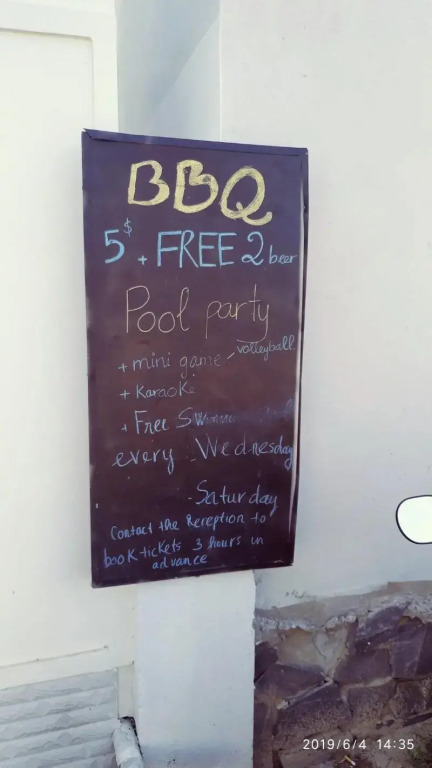 BBQ
5$ + FREE 2 beer
Pool party
+ mini game, volleyball
+ Karaoke
+ Free
every Wednesday
- Saturday
Contact the Reception to
book tickets 3 hours in
advance
2019/6/4 14:35